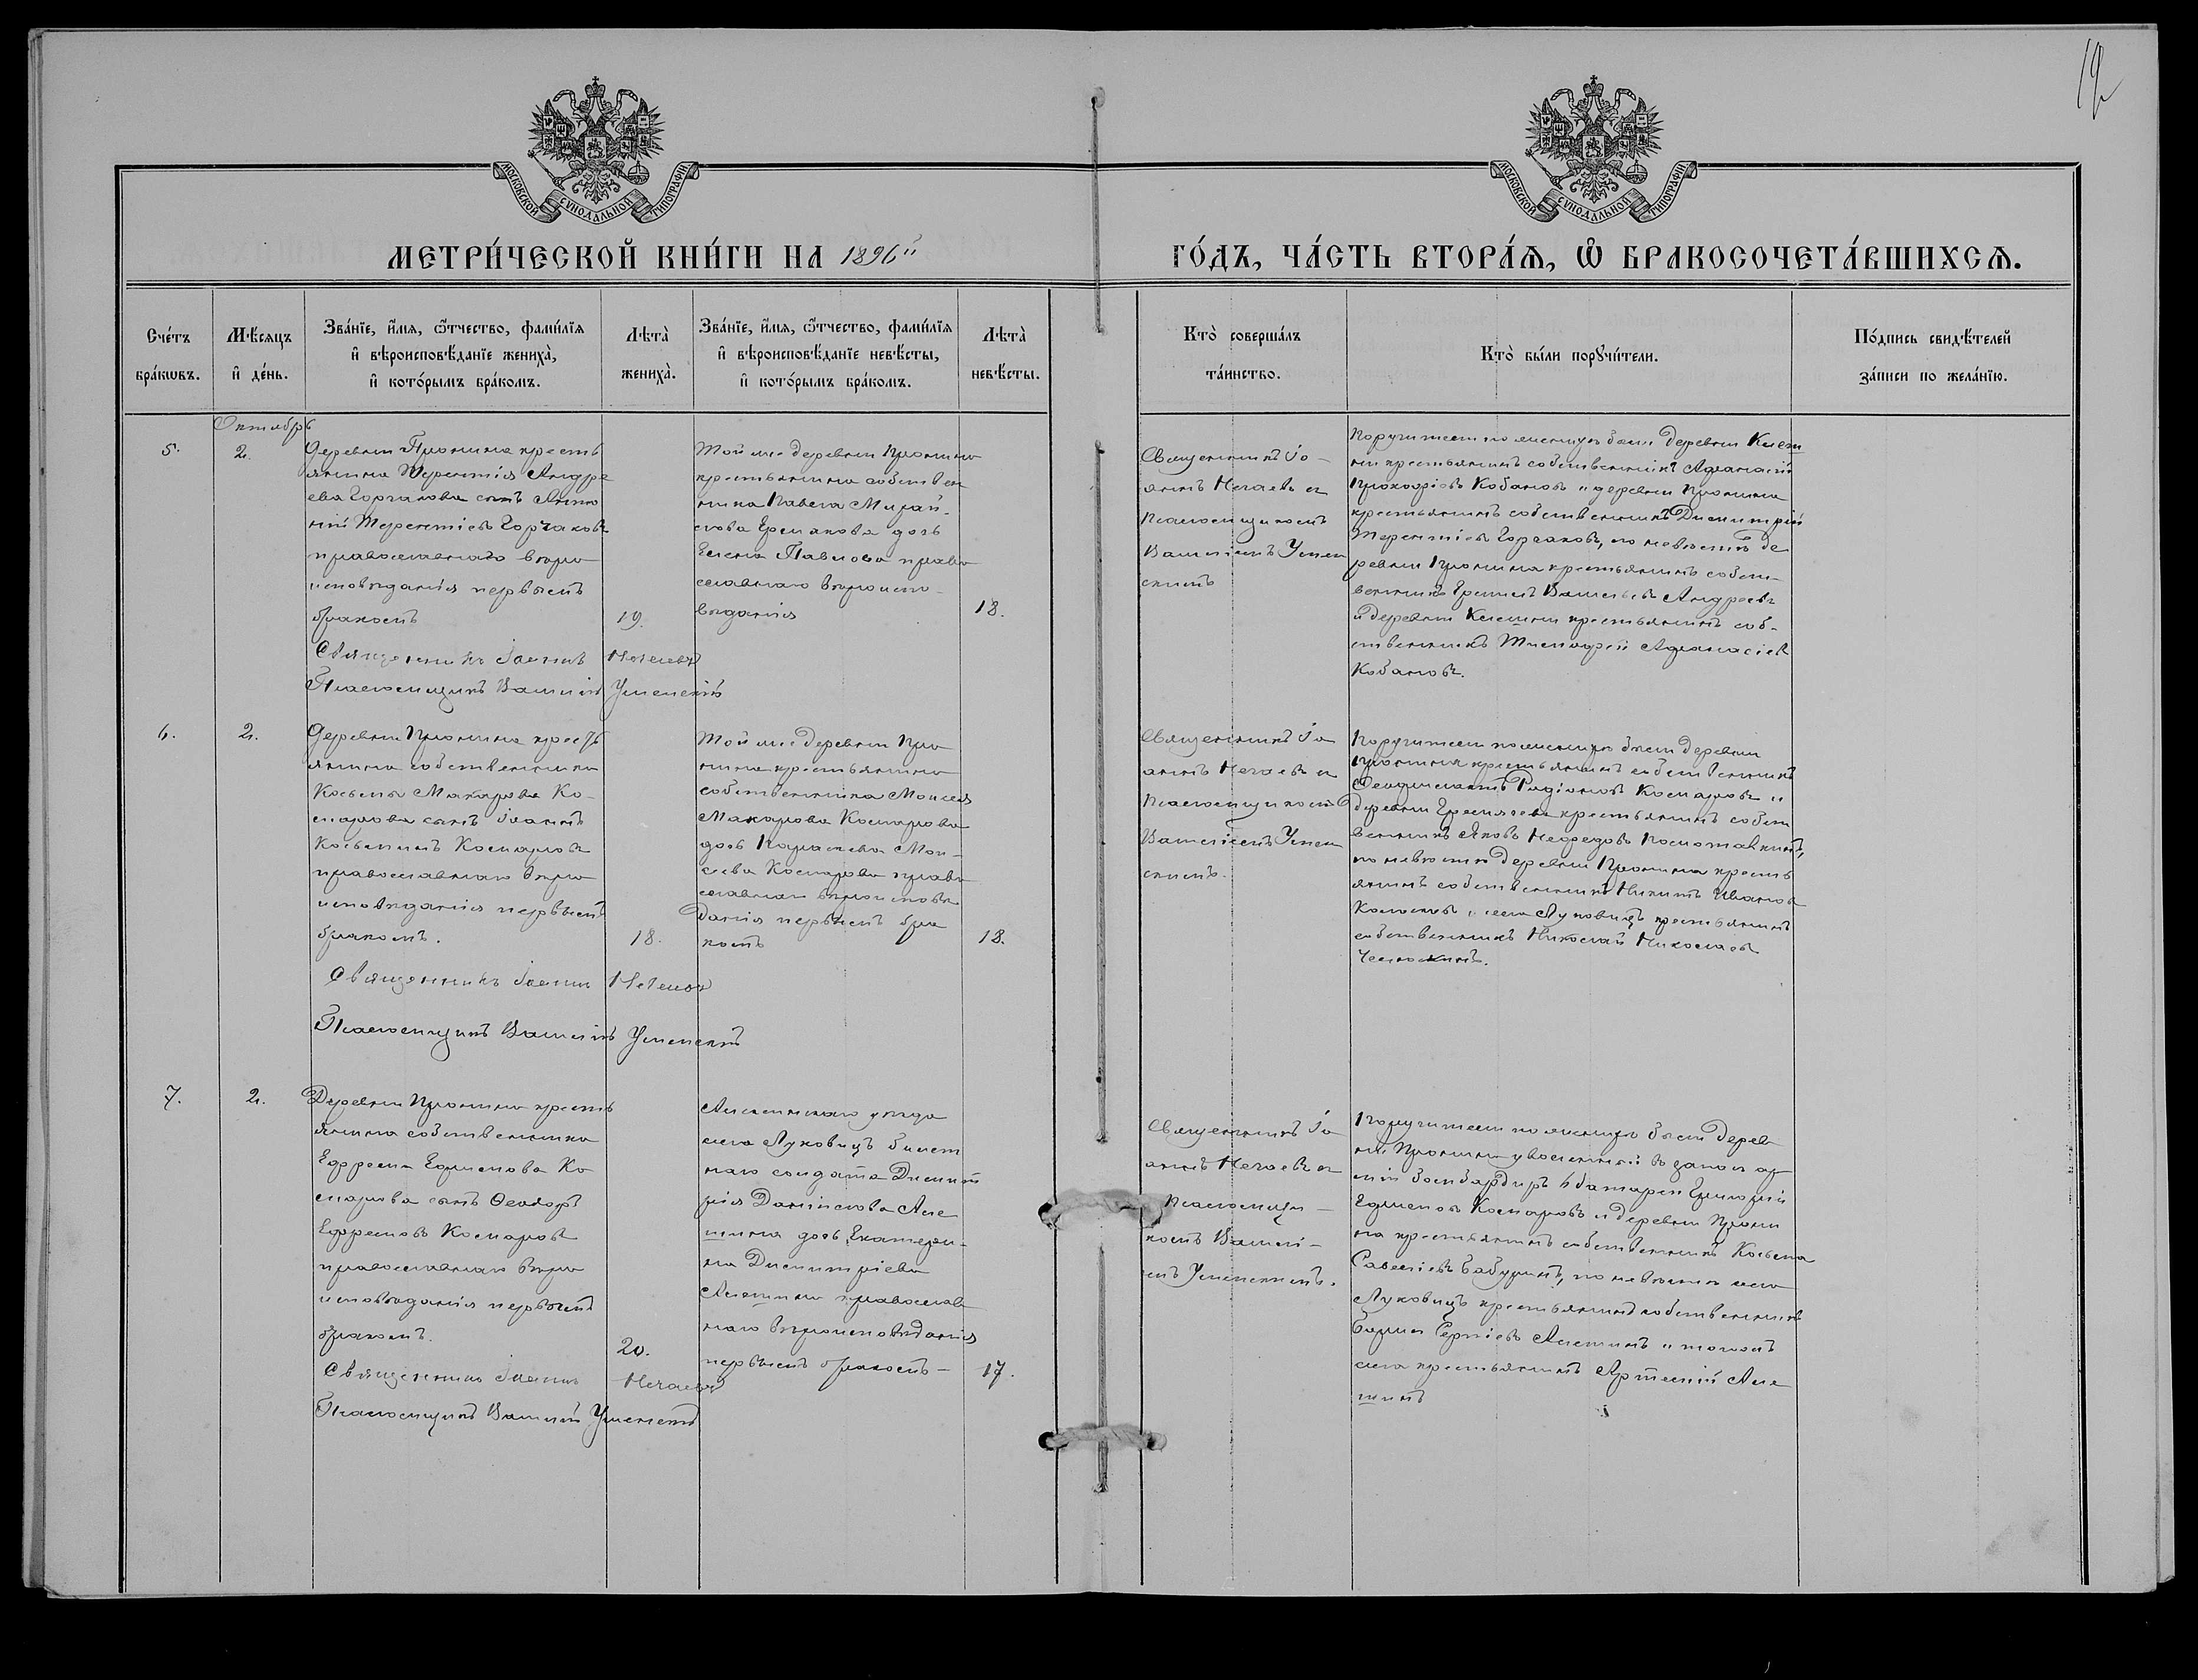 12
МОСКОВСКОЙ СѴНОДАЛЬНОЙ ТИПОГРАФІИ.
МОСКОВСКОЙ СѴНОДАЛЬНОЙ ТИПОГРАФІИ.
МЕТРИ́ЧЕСКОЙ КНИ́ГИ НА 1896й
ГО́ДЪ, ЧА́СТЬ ВТОРА́Ѧ, Ѽ БРАКОСОЧЕТА́ВШИХСѦ.
Сче́тъ
бра́кѡвъ.
Мѣ́сяцъ
и҆ де́нь.
Зва́нїе, и҆́мя, ѻ҆́тчество, фами́лїя
и҆ вѣроисповѣ́данїе жениха̀,
и҆ кото́рымъ бра́комъ.
Лѣта̀
жениха̀.
Зва́нїе, и҆́мя, ѻ҆́тчество, фами́лїя
и҆ вѣроисповѣ́данїе невѣ́сты,
и҆ кото́рымъ бра́комъ.
Лѣта̀
невѣ́сты.
Кто̀ соверша́лъ
та́инство.
Кто̀ бы́ли порꙋчи́тели.
По́дпись свидѣ́телей
за́писи по жела́нїю.
Октябрь
5.
2.
Деревни Пронина кресть
янина Терентія Андре
ева Горчакова сынъ Анто
ній Терентіевъ Горчаковъ
православнаго вѣро
исповѣданія первымъ
бракомъ
19.
Священникъ Іоаннъ Нечаевъ
Псаломщикъ Василій Успенскій
Той же деревни Пронина
крестьянина собствен
ника Павела Михай-
лова Ермакова дочь
Елена Павлова право
славнаго вѣроиспо-
вѣданія
18.
Священникъ Іо-
аннъ Нечаевъ съ
псаломщикомъ
Василіемъ Успен
скимъ
Поручители по женихѣ были деревни
ни крестьянинъ собственникъ Аѳанасій
Прокофіевъ Кобановъ и деревни Пронина
крестьянинъ собственникъ Димитрій
Терентіевъ Горчаковъ, по невѣстѣ де
ревни Пронина крестьянинъ собст-
венникъ Васильевъ Андреевъ
и деревни крестьянинъ соб-
ственникъ Тимоѳей Аѳанасіев
Кобановъ.
6.
2.
Деревни Пронина кресть
янина собственника
Косьмы Макарова Ко-
марова сынъ Іоаннъ
Косьминъ Комаровъ
православнаго вѣро
исповѣданія первымъ
бракомъ.
18.
Священникъ Іоаннъ Нечаевъ
Псаломщикъ Василій Успенскій
Той же деревни Про
нина крестьянина
собственника Моисея
Макарова Комарова
дочь Мои-
сеева Комарова право
славнаго вѣроисповѣ
данія первымъ бра
комъ
18.
Священникъ Іо
аннъ Нечаевъ съ
псаломщикомъ
Василіемъ Успен
скимъ.
Поручители по женихѣ были деревни
Пронина крестьянинъ собственникъ
Родіоновъ Комаровъ и
деревни крестьянинъ собст
венникъ Яковъ
по невѣстѣ деревни Пронина кресть
янинъ собственникъ Никита Ивановъ
и села Луковицъ крестьянинъ
собственникъ Николай Николаевъ
7.
2.
Деревни Пронина кресть
янина собственника
Ефрема Ко
марова сынъ Ѳеодоръ
Ефремовъ Комаровъ
православнаго вѣро
исповѣданія первымъ
бракомъ.
20.
Священникъ Іоаннъ Нечаевъ
Псаломщикъ Василій Успенскій
уѣзда
села Луковицъ билет
наго солдата Димит
рія Даніилова Але
шина дочь Екатери-
на Димитріева
Алешина православ
наго вѣроисповѣданія
первымъ бракомъ-
17.
Священникъ Іо
аннъ Нечаевъ съ
псаломщи-
комъ Василі-
емъ Успенскимъ.
Поручители по женихѣ были дерев
ни Пронина уволенный въ запасъ ар
міи бомбардиръ 6 батареи Григорій
Комаровъ и деревни Прони
на крестьянинъ собственникъ Косьма
Савеліевъ Бабушинъ, по невѣстѣ села
Луковицъ крестьянинъ собственникъ
Борисъ Сергіевъ Алешинъ и тогожъ
села крестьянинъ Артемій Але
шинъ